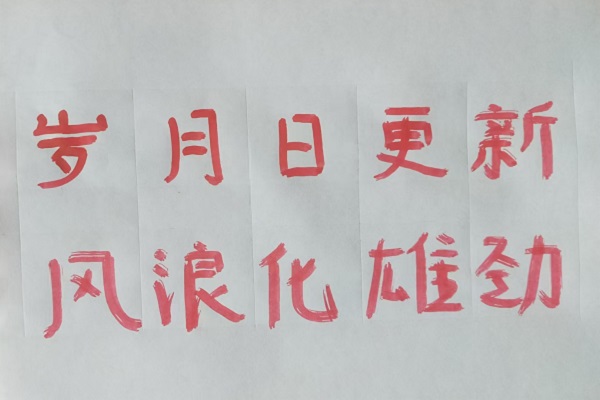 岁月日更新
风浪化雄劲